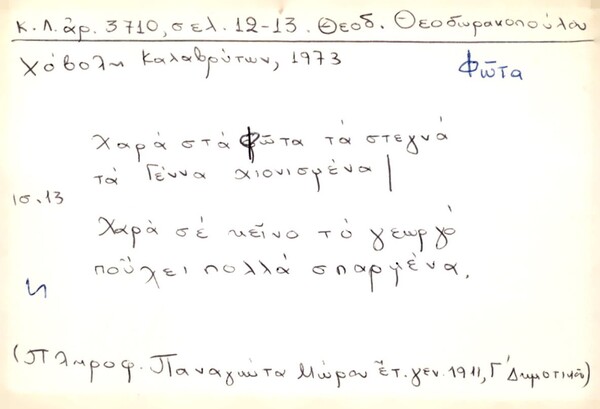 Κ.Λ. ἀρ. 3710, σελ. 12-13. Θεοδ. Θεοδωρακοπούλου
Χόβολη Καλαβρύτων, 1973
Φῶτα
Χαρά στά Φῶτα τά στεγνά
τά Γέννα χιονισμένα
ισ. 13
Χαρά σέ κεῖνο τό γεωργό
ποὔχει πολλά σπαρμένα.
(Πληροφ. Παναγιώτα Μώρου ἔτ. γεν. 1911, Γ' Δημοτικοῦ)